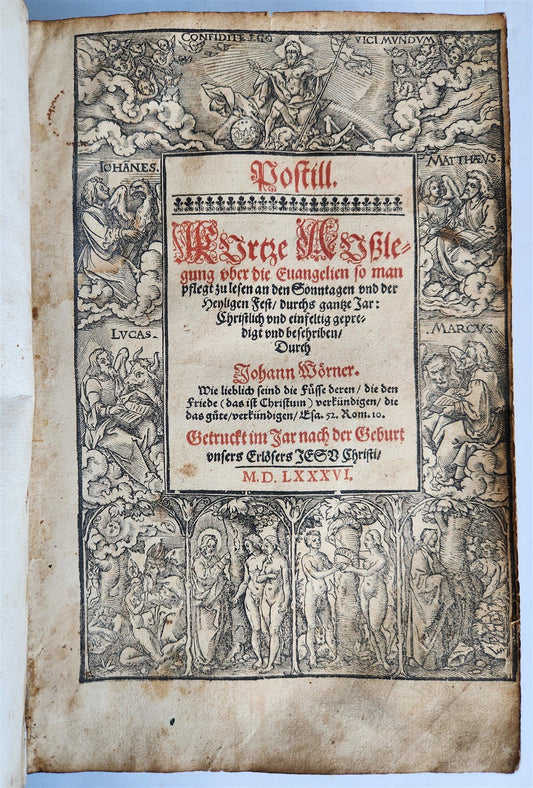 CONFIDITE EGO VICI MUNDUM
IOHANES.
MATTHÆVS.
LVCAS.
MARCVS.
Postill.
KUrtze AUßle-
gung vber die Euangelien so man
pflegt zu lesen an den Sonntagen vnd der
Heyligen Fest/ durchs gantze Jar:
Christlich vnd einfeltig gepre-
digt vnd beschriben/
Durch
Johann Wörner.
Wie lieblich seind die Füsse deren/ die den
Friede (das ist Christum) verkündigen/ die
das güte/verkündigen/ Esa. 52. Rom. 10.
Getruckt im Jar nach der Geburt
vnsers Erlösers JESV Christi/
M. D. LXXXVI.